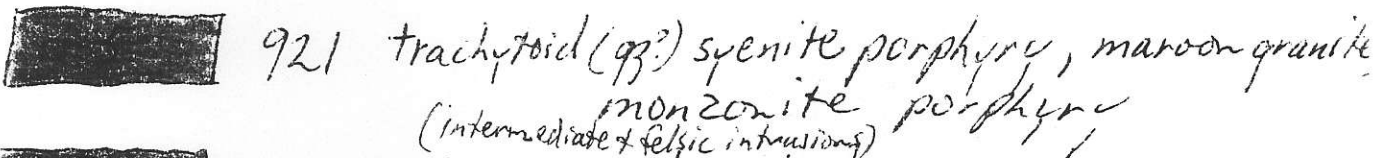 921 trachytoid (qz?) syenite porphyry, maroon granite
monzonite porphyry
(intermediate & felsic intrusions)